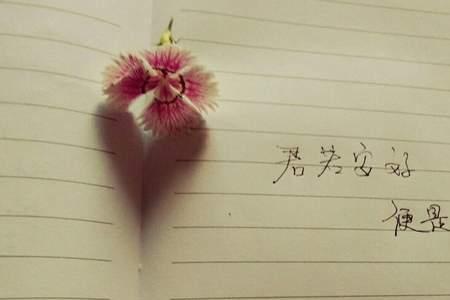 君若安好
便是